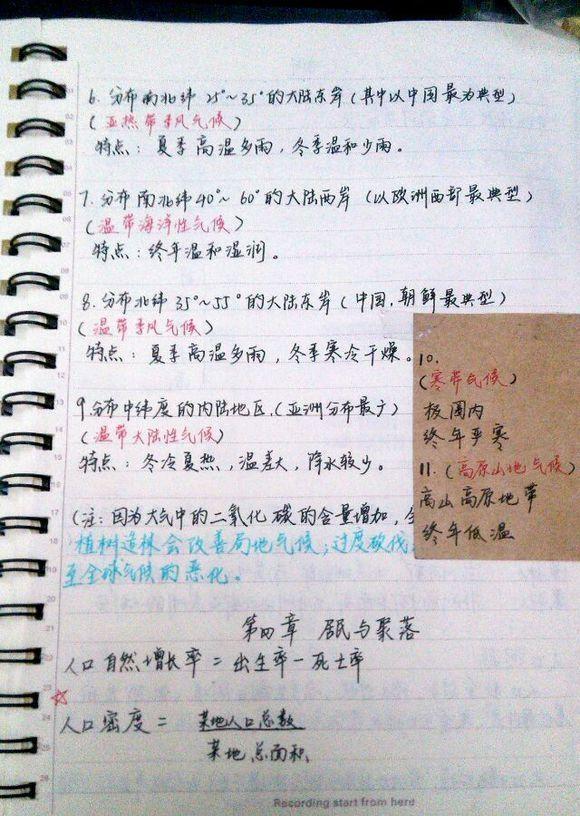 6. 分布南北纬25°~35°的大陆东岸(其中以中国最为典型)
(亚热带季风气候)
特点:夏季高温多雨,冬季温和少雨。
7. 分布南北纬40°~60°的大陆西岸(以欧洲西部最典型)
(温带海洋性气候)
特点:终年温和湿润。
8. 分布北纬35°~55°的大陆东岸(中国,朝鲜最典型)
(温带季风气候)
特点:夏季高温多雨,冬季寒冷干燥。
9.分布中纬度的内陆地区,(亚洲分布最广)
(温带大陆性气候)
特点:冬冷夏热,温差大,降水较少。
10.
(寒带气候)
极圈内
终年严寒
11.(高原山地气候)
高山高原地带
终年低温
(注:因为大气中的二氧化碳的含量增加,
植树造林会改善局地气候;过度砍伐
至全球气候的恶化。
第四章 居民与聚落
人口自然增长率=出生率-死亡率
☆
人口密度=某地人口总数
某地总面积
Recording start from here